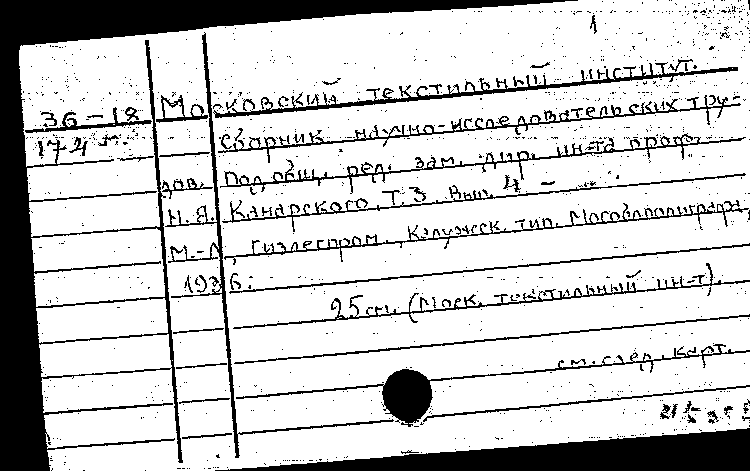 1
36-18 Московский текстильный институт.
174 Сборник научно-исследовательских тру-
дов. Под общ. ред. зам. дир. ин-та проф.
Н. Я. Канарского. Т. 3. Вып. 4 -
М.-Л., Гизлегпром., Калужск. тип. Мособлполиграфа,
1936.
25 см. (Моск. текстильный ин-т).
см. след. карт.